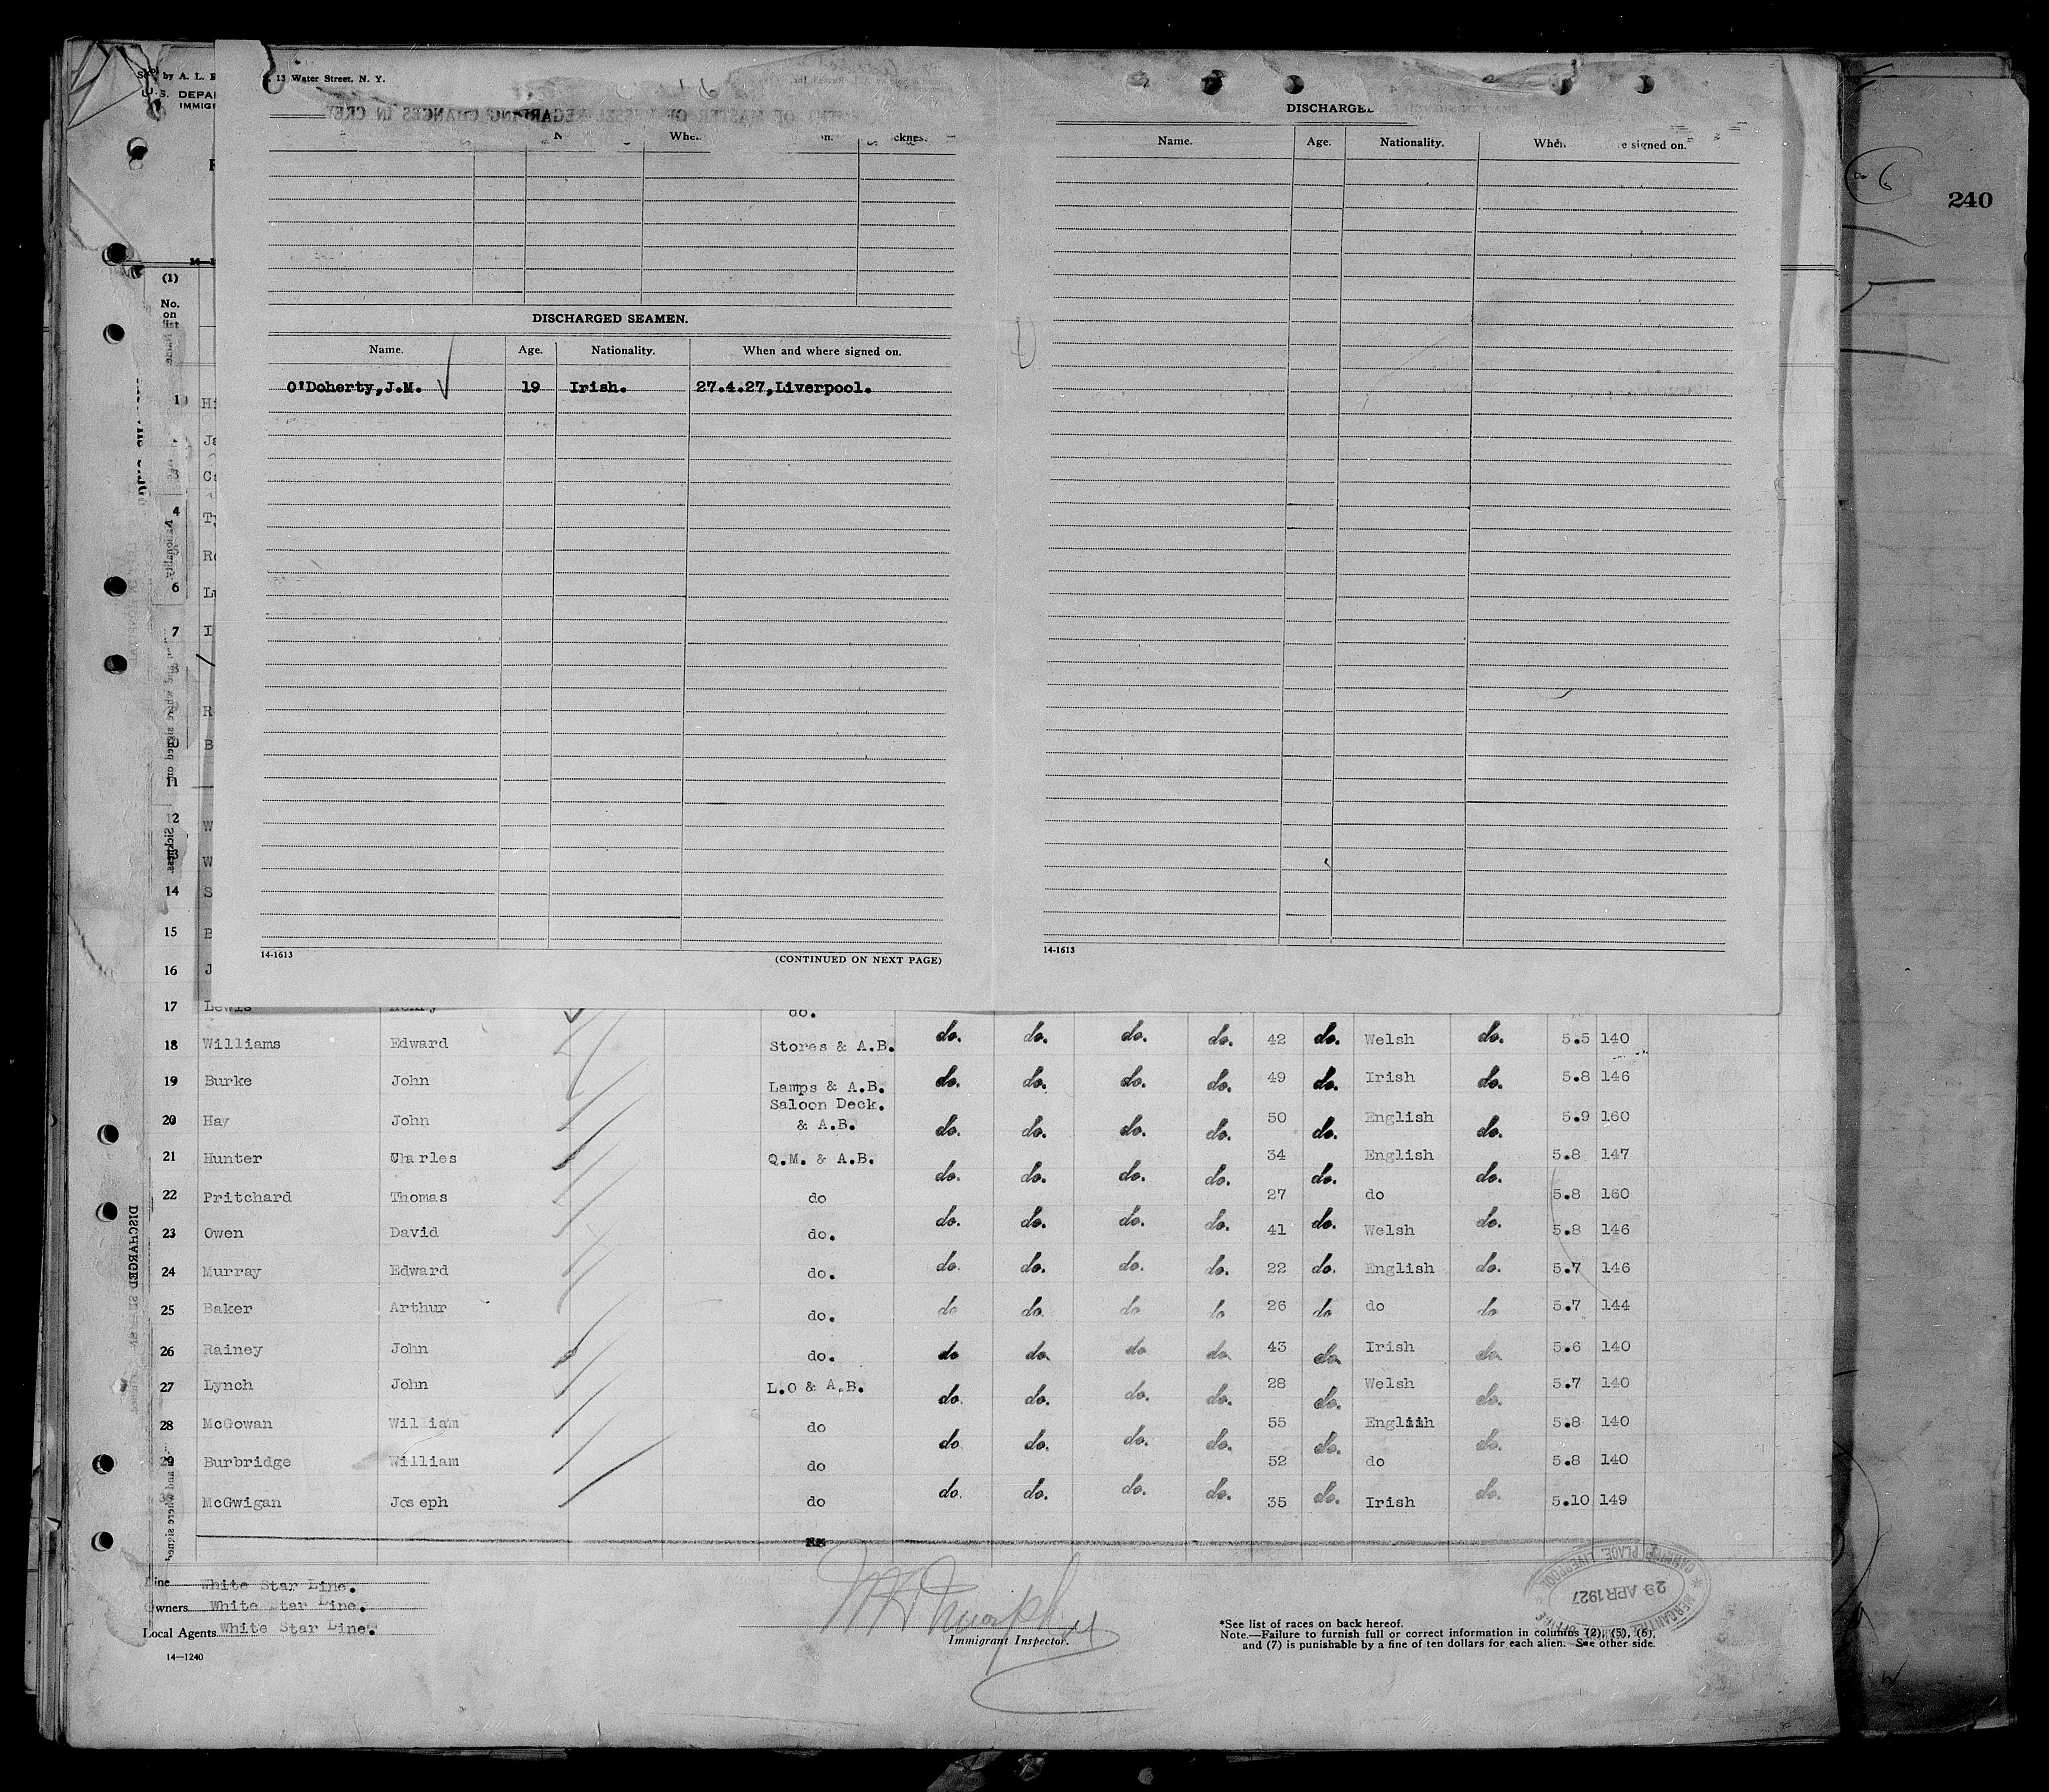 by A. L.
13 Water Street, N. Y.
U.S. DEPAR
IMMIGR
240
DISCHARGE
Name. Age. Nationality. When e signed on.
DISCHARGED SEAMEN.
Name. Age. Nationality. When and where signed on.
O'Doherty,J.M. 19 Irish. 27.4.27,Liverpool.
14-1613 (CONTINUED ON NEXT PAGE)
14-1613
(1)
No.
on
list
1 Hi
Ja
3 Ca
4 Ty
5 Ro
6 Lu
7 I
8
R
B
11
12 W
13 W
14 S
15 B
16 J
17 Lewis Henry do.
18 Williams Edward Stores & A.B. do. do. do. do. 42 do. Welsh do. 5.5 140
19 Burke John Lamps & A.B. do. do. do. do. 49 do. Irish do. 5.8 146
Saloon Deck.
20 Hay John & A.B. do. do. do. do. 50 do. English do. 5.9 160
21 Hunter Charles Q.M. & A.B. do. do. do. do. 34 do. English do. 5.8 147
22 Pritchard Thomas do do. do. do. do. 27 do. do do. 5.8 160
23 Owen David do. do. do. do. do. 41 do. Welsh do. 5.8 146
24 Murray Edward do. do. do. do. do. 22 do. English do. 5.7 146
25 Baker Arthur do. do do. do do 26 do do do 5.7 144
26 Rainey John do. do do. do do. 43 do. Irish do. 5.6 140
27 Lynch John L.O & A.B. do. do. do. do. 28 do. Welsh do. 5.7 140
28 McGowan William do do. do. do. do. 55 do. Engliih do. 5.8 140
29 Burbridge William do do. do. do. do. 52 do. do do. 5.8 140
McGwigan Joseph do 35 Irish 5.10 149
Line White Star Line.
Owners White Star Line.
Local Agents White Star Line.
14—1240
Immigrant Inspector.
*See list of races on back hereof.
Note.—Failure to furnish full or correct information in columns (2), (5), (6),
and (7) is punishable by a fine of ten dollars for each alien. See other side.
MERCANTILE MARINE OFFICE
CANNING PLACE, LIVERPOOL
29 APR 1927